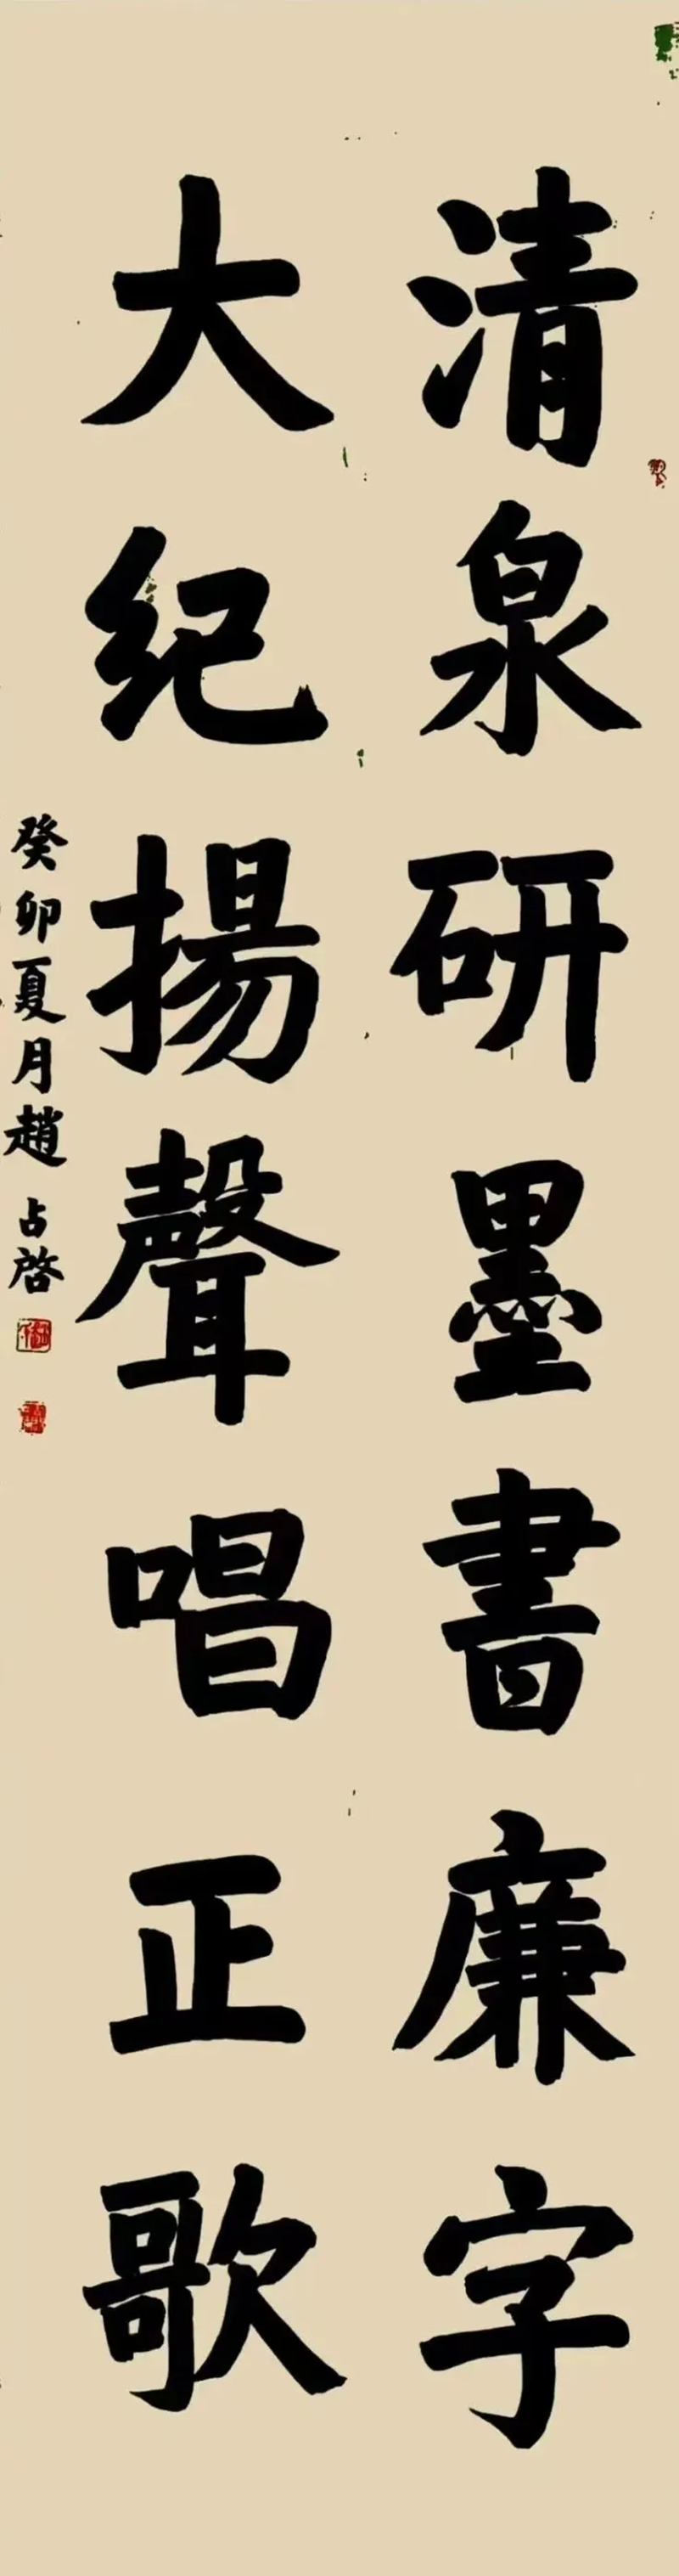 清泉研墨書廉字
大纪揚聲唱正歌
癸卯夏月趙占啓